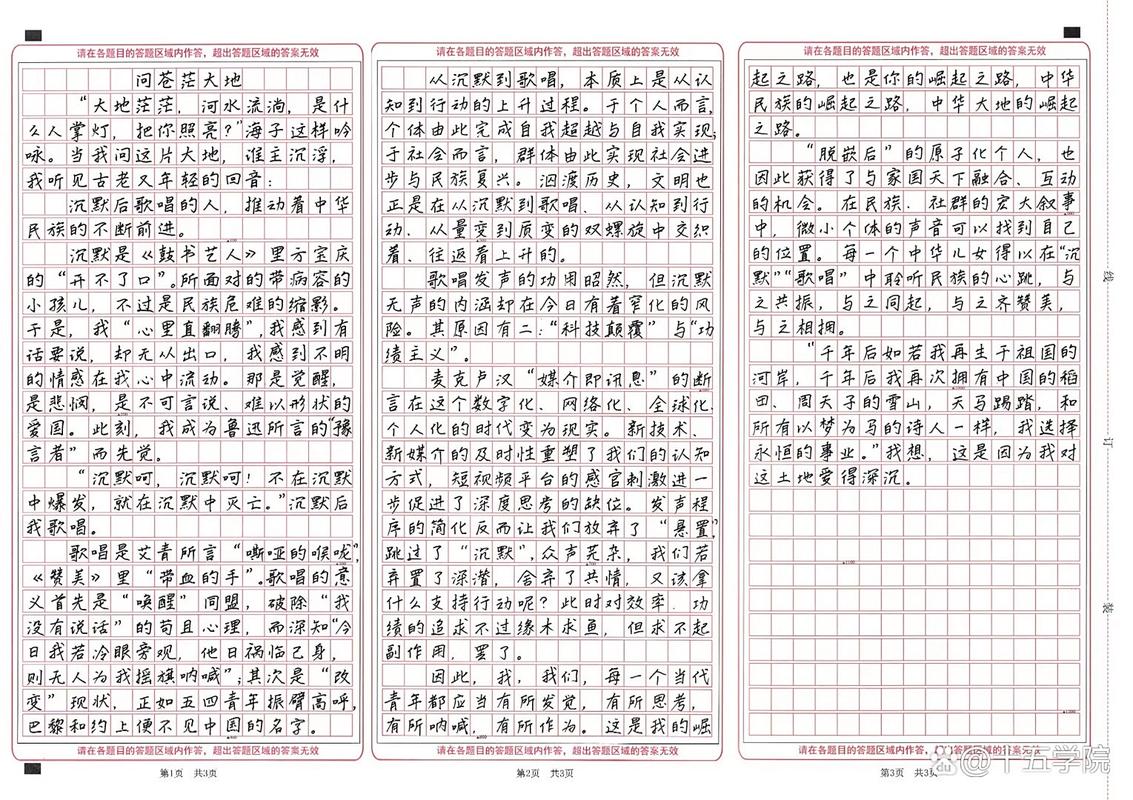 请在各题目的答题区域内作答，超出答题区域的答案无效
问苍茫大地
“大地茫茫，河水流淌，是什
么人掌灯，把你照亮？”海子这样吟
咏。当我问这片大地，谁主沉浮，
我听见古老又年轻的回音：
沉默后歌唱的人，推动着中华
民族的不断前进。
沉默是《鼓书艺人》里方宝庆
的“开不了口”。所面对的带病容的
小孩儿，不过是民族危难的缩影。
于是，我“心里直翻腾”，我感到有
话要说，却无从出口，我感到不明
的情感在我心中流动。那是觉醒，
是悲悯，是不可言说、难以形状的
爱国。此刻，我成为鲁迅所言的“豫
言者”而先觉。
“沉默呵，沉默呵！不在沉默
中爆发，就在沉默中灭亡。”沉默后
我歌唱。
歌唱是艾青所言“嘶哑的喉咙”，
《赞美》里“带血的手”。歌唱的意
义首先是“唤醒”同盟，破除“我
没有说话”的苟且心理，而深知“今
日我若冷眼旁观，他日祸临己身，
则无人为我摇旗呐喊”；其次是“改
变”现状，正如五四青年振臂高呼，
巴黎和约上便不见中国的名字。
请在各题目的答题区域内作答，超出答题区域的答案无效
第1页 共3页
请在各题目的答题区域内作答，超出答题区域的答案无效
从沉默到歌唱，本质上是从认
知到行动的上升过程。于个人而言，
个体由此完成自我超越与自我实现；
于社会而言，群体由此实现社会进
步与民族复兴。泅渡历史，文明也
正是在从沉默到歌唱、从认知到行
动、从量变到质变的双螺旋中交织
着、往返着上升的。
歌唱发声的功用昭然，但沉默
无声的内涵却在今日有着窄化的风
险。其原因有二：“科技颠覆”与“功
绩主义”。
麦克卢汉“媒介即讯息”的断
言在这个数字化、网络化、全球化、
个人化的时代变为现实。新技术、
新媒介的及时性重塑了我们的认知
方式，短视频平台的感官刺激进一
步促进了深度思考的缺位。发声程
序的简化反而让我们放弃了“悬置”，
跳过了“沉默”，众声芜杂，我们若
弃置了深潜，舍弃了共情，又该拿
什么支持行动呢？此时对效率、功
绩的追求不过缘木求鱼，但求不起
副作用，罢了。
因此，我，我们，每一个当代
青年都应当有所发觉，有所思考，
有所呐喊，有所作为。这是我的崛
请在各题目的答题区域内作答，超出答题区域的答案无效
第2页 共3页
请在各题目的答题区域内作答，超出答题区域的答案无效
起之路，也是你的崛起之路，中华
民族的崛起之路，中华大地的崛起
之路。
“脱嵌后”的原子化个人，也
因此获得了与家国天下融合、互动
的机会。在民族、社群的宏大叙事
中，微小个体的声音可以找到自己
的位置。每一个中华儿女得以在“沉
默”“歌唱”中聆听民族的心跳，与
之共振，与之同起，与之齐赞美，
与之相拥。
“千年后如若我再生于祖国的
河岸，千年后我再次拥有中国的稻
田、周天子的雪山，天马踢踏，和
所有以梦为马的诗人一样，我选择
永恒的事业。”我想，这是因为我对
这土地爱得深沉。
请在各题目的答题区域内作答，超出答题区域的答案无效
第3页 共3页
线
订
装
@十五学院